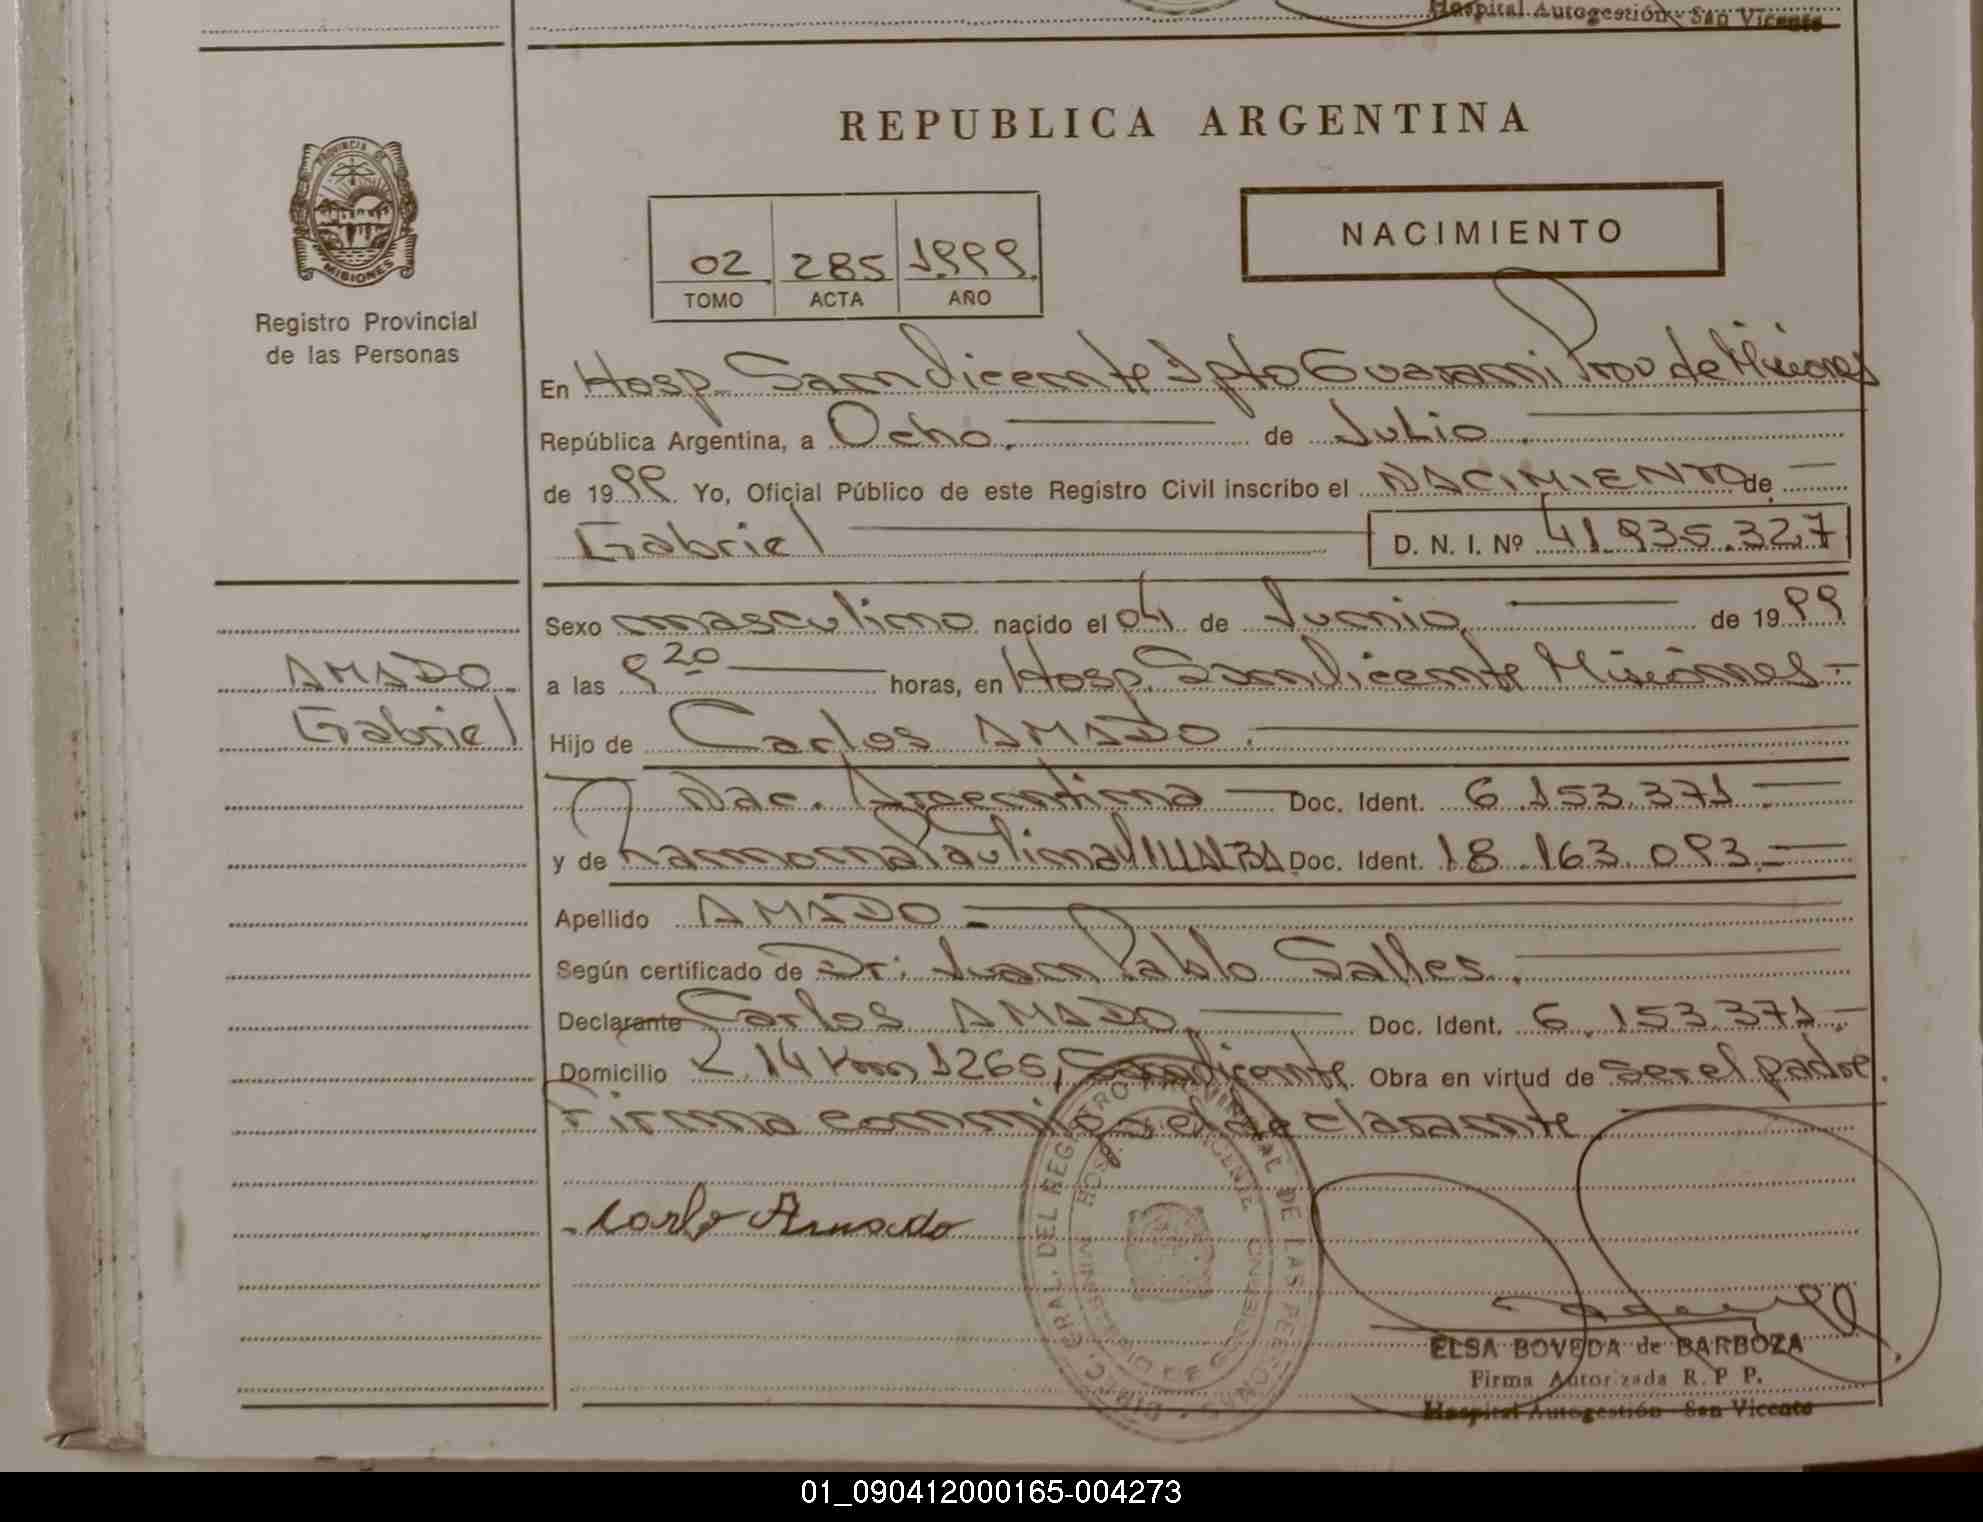 Hospital Autogestión - San Vicente
REPUBLICA ARGENTINA
PROVINCIA DE
MISIONES
Registro Provincial
de las Personas
02 285 1999
TOMO ACTA AÑO
NACIMIENTO
En Hosp. San Vicente Dpto Guarani Prov de Misiones
República Argentina, a Ocho. de Julio
de 1999 Yo, Oficial Público de este Registro Civil inscribo el NACIMIENTO de
Gabriel D. N. I. Nº 41.935.327
Sexo masculino nacido el 04 de Junio de 1999
AMADO
Gabriel
a las 9 20 horas, en Hosp. San Vicente Misiones
Hijo de Carlos AMADO.
Nac. Argentina Doc. Ident. 6.153.371
y de Ramona Paulina VILLALBA Doc. Ident. 18.163.093
Apellido AMADO
Según certificado de Dr. Juan Pablo Salles
Declarante Carlos AMADO Doc. Ident. 6.153.371
Domicilio R 14 Km 1265, San Vicente Obra en virtud de ser el padre
Firma conmigo el declarante
Carlo Amado
DIREC. GRAL. DEL REGISTRO PROVINCIAL DE LAS PERSONAS
ELSA BOVEDA de BARBOZA
Firma Autorizada R. P P.
Hospital Autogestión - San Vicente
01_090412000165-004273